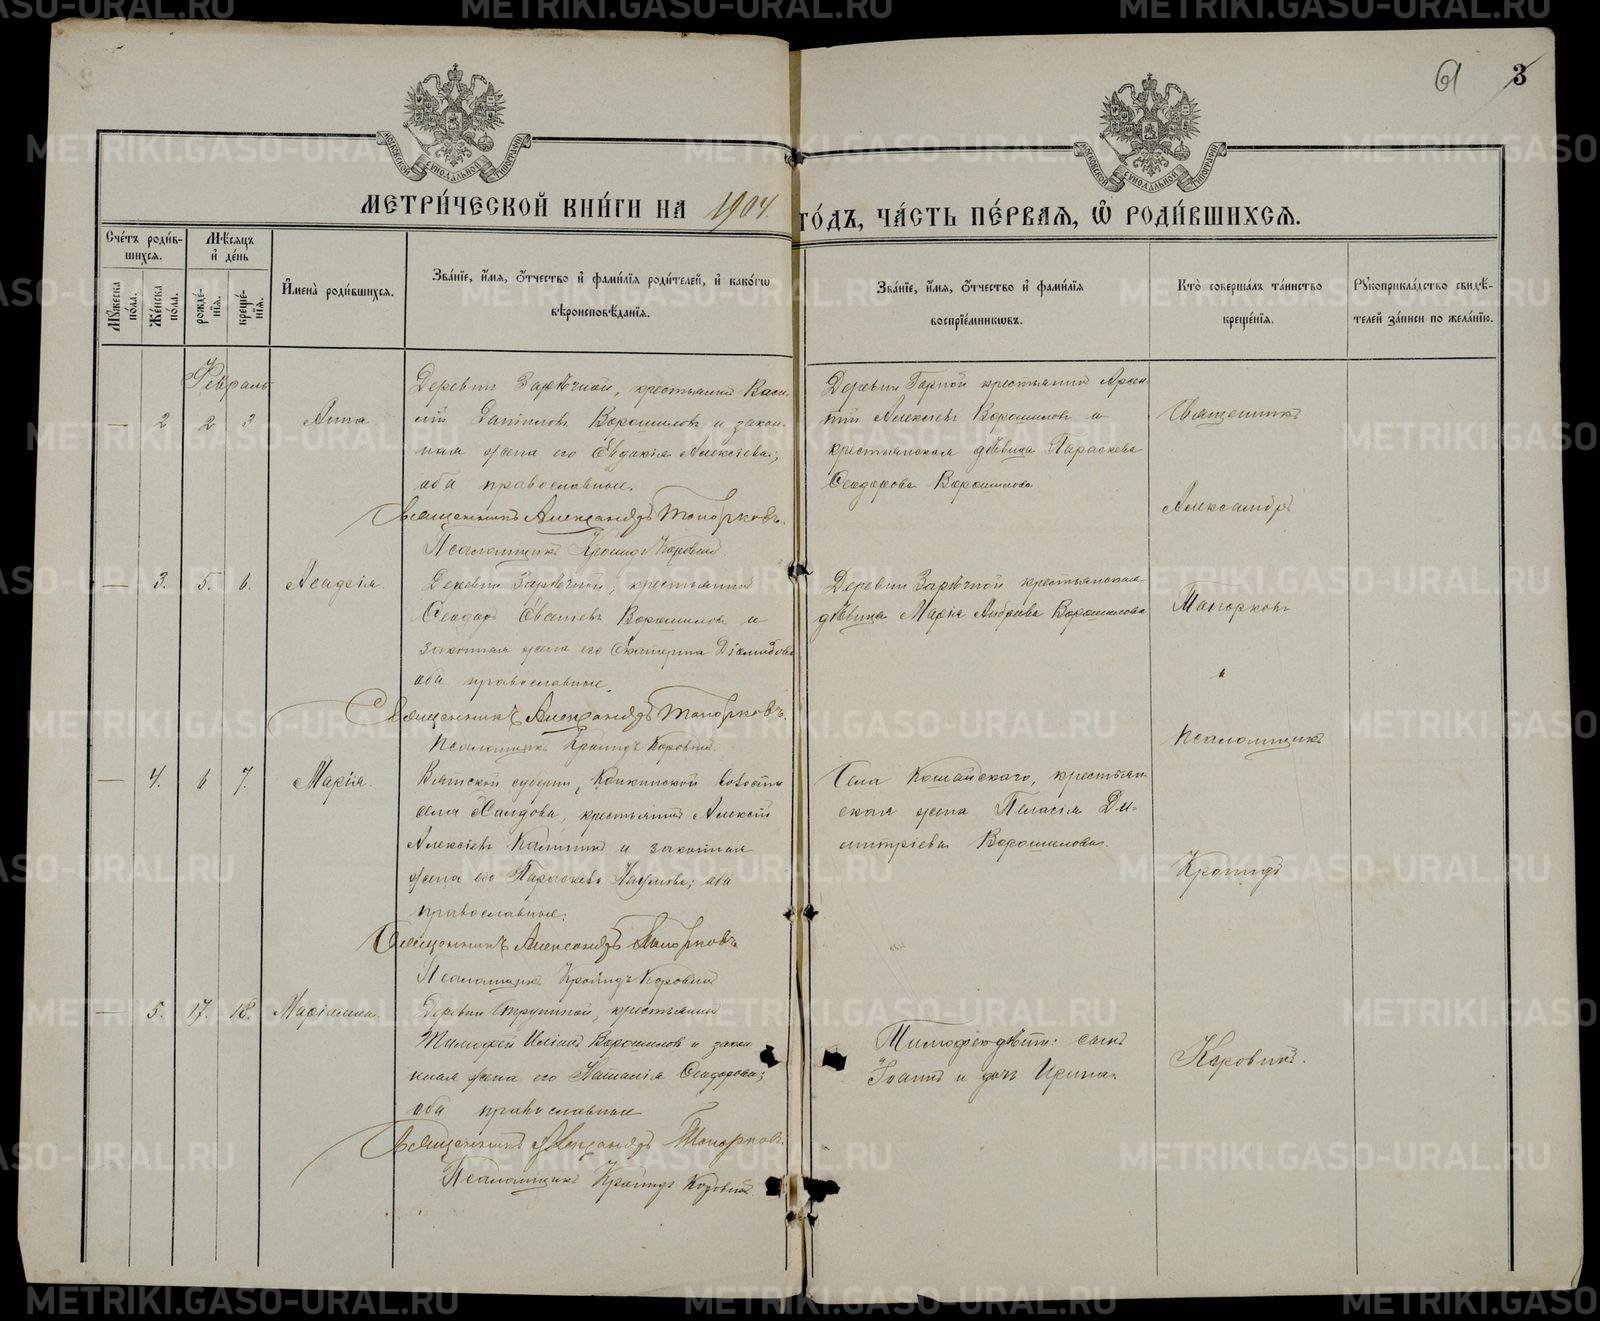 61 3
МОСКОВСКОЙ СѴНОДАЛЬНОЙ ТИПОГРАФІИ
МОСКОВСКОЙ СѴНОДАЛЬНОЙ ТИПОГРАФІИ
МЕТРИ́ЧЕСКОЙ КНИ́ГИ НА 1904 ГО́ДЪ, ЧА́СТЬ ПЕ́РВАЯ, Ѽ РОДИ́ВШИХСЯ.
Сче́тъ роди́в-
шихся.
Мꙋжеска по́ла.
Же́нска по́ла.
Мѣ́сяцъ
и де́нь
рожде́-
нїя.
креще́-
нїя.
Имена̀ роди́вшихся.
Зва́нїе, и́мя, ѻ́тчество и фами́лїя роди́телей, и како́гѡ
вѣроисповѣ́данїя.
Зва́нїе, и́мя, ѻ́тчество и фами́лїя
воспрїе́мникѡвъ.
Кто̀ соверша́лъ та́инство
креще́нїя.
Рꙋкоприкла́дство свидѣ́-
телей за́писи по жела́нїю.
Февраль
— 2 2 3 Анна
Деревни Зарѣчной, крестьянинъ Васи-
лій Даніиловъ Ворошиловъ и закон-
ная жена его Евдокія Алексіева;
оба православные.
Священникъ Александръ Топорковъ.
Псаломщикъ Кронидъ Коровинъ
Деревни Горной крестьянинъ Арсен-
тій Алексіевъ Ворошиловъ и
крестьянская дѣвица Параскева
Ѳеодорова Ворошилова
Священникъ
Александръ
Топорковъ
и
Псаломщикъ
Кронидъ
Коровинъ.
— 3. 5. 6. Агафія
Деревни Зарѣчной, крестьянинъ
Ѳеодоръ Ворошиловъ и
законная жена его Екатерина
оба православные.
Священникъ Александръ Топорковъ.
Псаломщикъ Кронидъ Коровинъ.
Деревни Зарѣчной крестьянская
дѣвица Марія Ворошилова
— 4. 6 7. Марія.
Вятской губерніи, волости
села крестьянинъ Алексій
Алексіевъ Калининъ и законная
жена его Параскева Наумова; оба
православные.
Священникъ Александръ Топорковъ
Псаломщикъ Кронидъ Коровинъ
Села Кошайскаго, крестьян-
ская жена Пелагія Ди-
митріева Ворошилова.
— 5. 17. 18. Маріамна.
Деревни крестьянинъ
Тимофей Иліинъ Ворошиловъ и закон-
ная жена его Наталія Ѳеодорова;
оба православные
Священникъ Александръ Топорковъ.
Псаломщикъ Кронидъ Коровинъ.
дѣти: сынъ
Іоаннъ и дочь Ирина.
METRIKI.GASO-URAL.RU